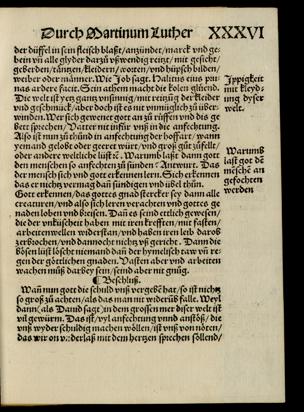 Durch Martinum Luther XXXVI
der düffel in sein fleisch blaßt/anzündet/marck vnd ge-
bein vñ alle glyder darzů vßwendig reitzt/mit gesicht/
geberden/täntzen/kleidern/worten/vnd hübschen bilden/
weiber oder männer. Wie Job sagt. Halitus eius pru-
nas ardere facit. Sein athem macht die kolen glüend.
Die welt ist yetz gantz vnsinnig/mit reitzũg der kleider
vnd geschmuck/aber doch ist es nit vnmüglich zů über-
winden. Wer sich gewenet got an zů rüffen vnd dis ge-
bett sprechen/Vatter nit infür vnß in die anfechtung.
Also ist man zů thůnd in anfechtung der hoffart/wann
yemand gelobt oder geeret würt/vnd groß gůt zůfelt/
oder andere weltliche lüst ꝛc̃. Warumb laßt dann got
den menschen so anfechten zů sünden? Antwurt. Das
der mensch sich vnd got erkennen lern. Sich erkennen
das er nichts vermag dañ sündigen vnd übel thůn.
Got erkennen/das gottes gnad stercker sey dann alle
creaturen/vnd also sich leren verachten vnd gottes ge-
naden loben vnd breisen. Dañ es seind etlich gewesen/
die der vnküscheit haben mit iren krefften/mit fasten/
arbeiten wellen widerstan/vnd haben iren leib darob
zerbrochen/vnd dannocht nichtz vß gericht. Dann die
bösen lüst löschet niemand dañ der hymelisch taw vñ re-
gen der götlichen gnaden. Vasten aber vnd arbeiten
wachen můß darbey sein/seind aber nit gnůg.
¶ Beschluß.
Wañ nun got die schuld vnß vergebẽ hat/so ist nichtz
so groß zů achten/als das man nit widerũb falle. Weyl
dann(als Dauid sagt)in dem grossen mer diser welt ist
vil gewürm. Das ist/vyl anfechtung vnnd anstöß/die
vnß wyder schuldig machen wöllen/ist vnß von nöten/
das wir on vnderlaß mit dem hertzen sprechen söllend/
Jppigkeit
mit kleyd-
ung dyser
welt.
Warumb
laßt got dẽ
mẽsche an-
gefochten
werden